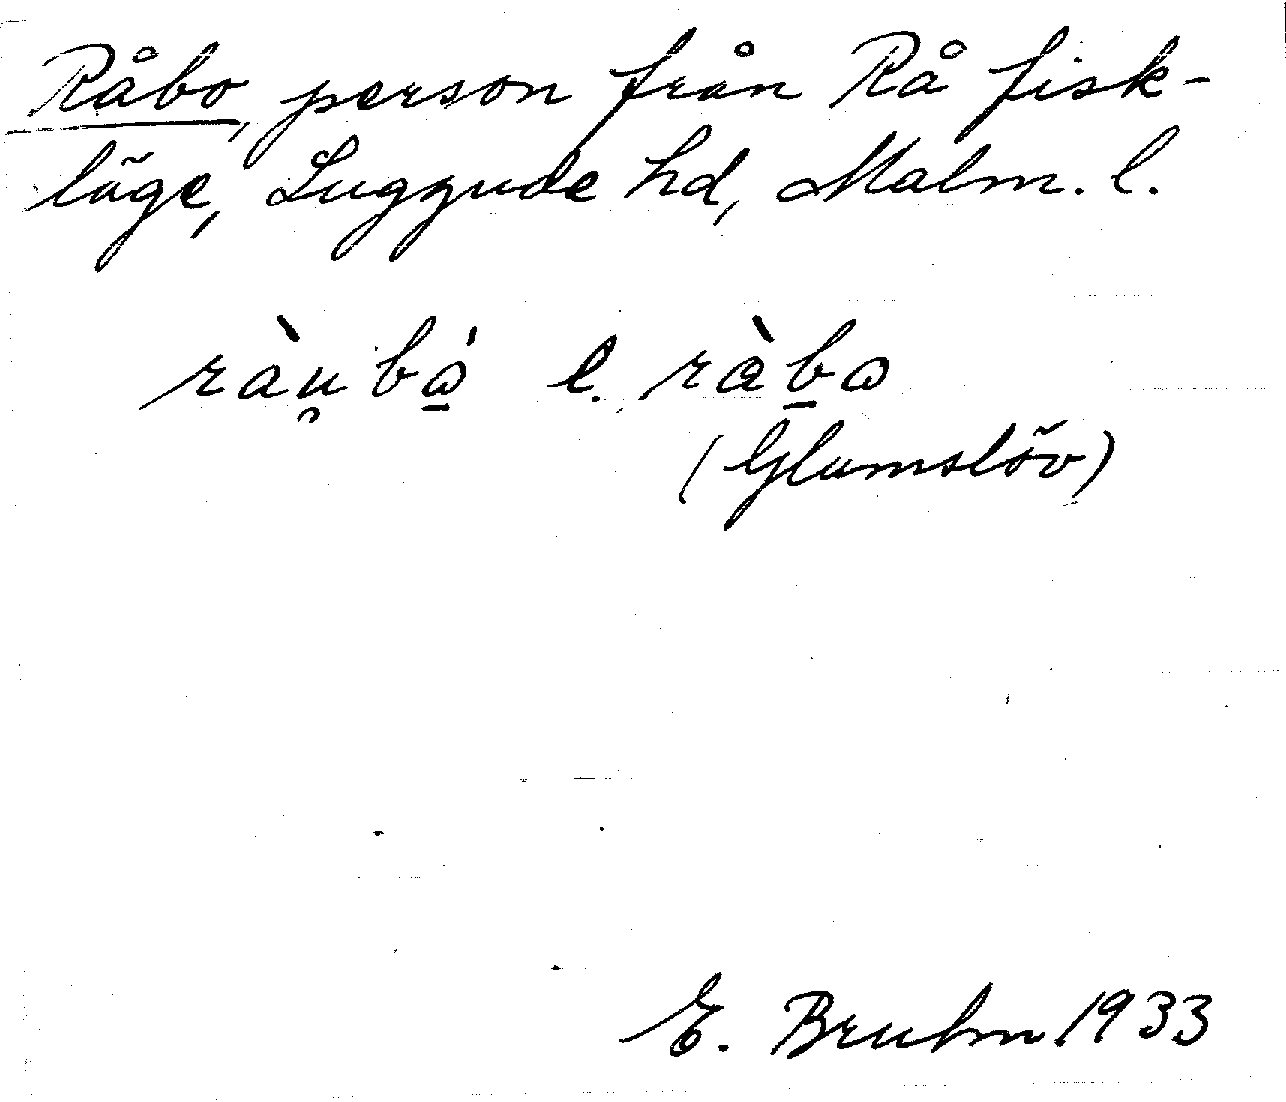 Råbo, person från Rå fisk-
läge, Luggude hd, Malm. l.
ràu̯bó̲ l. ràb̲o
(Glumslöv)
E. Bruhn 1933